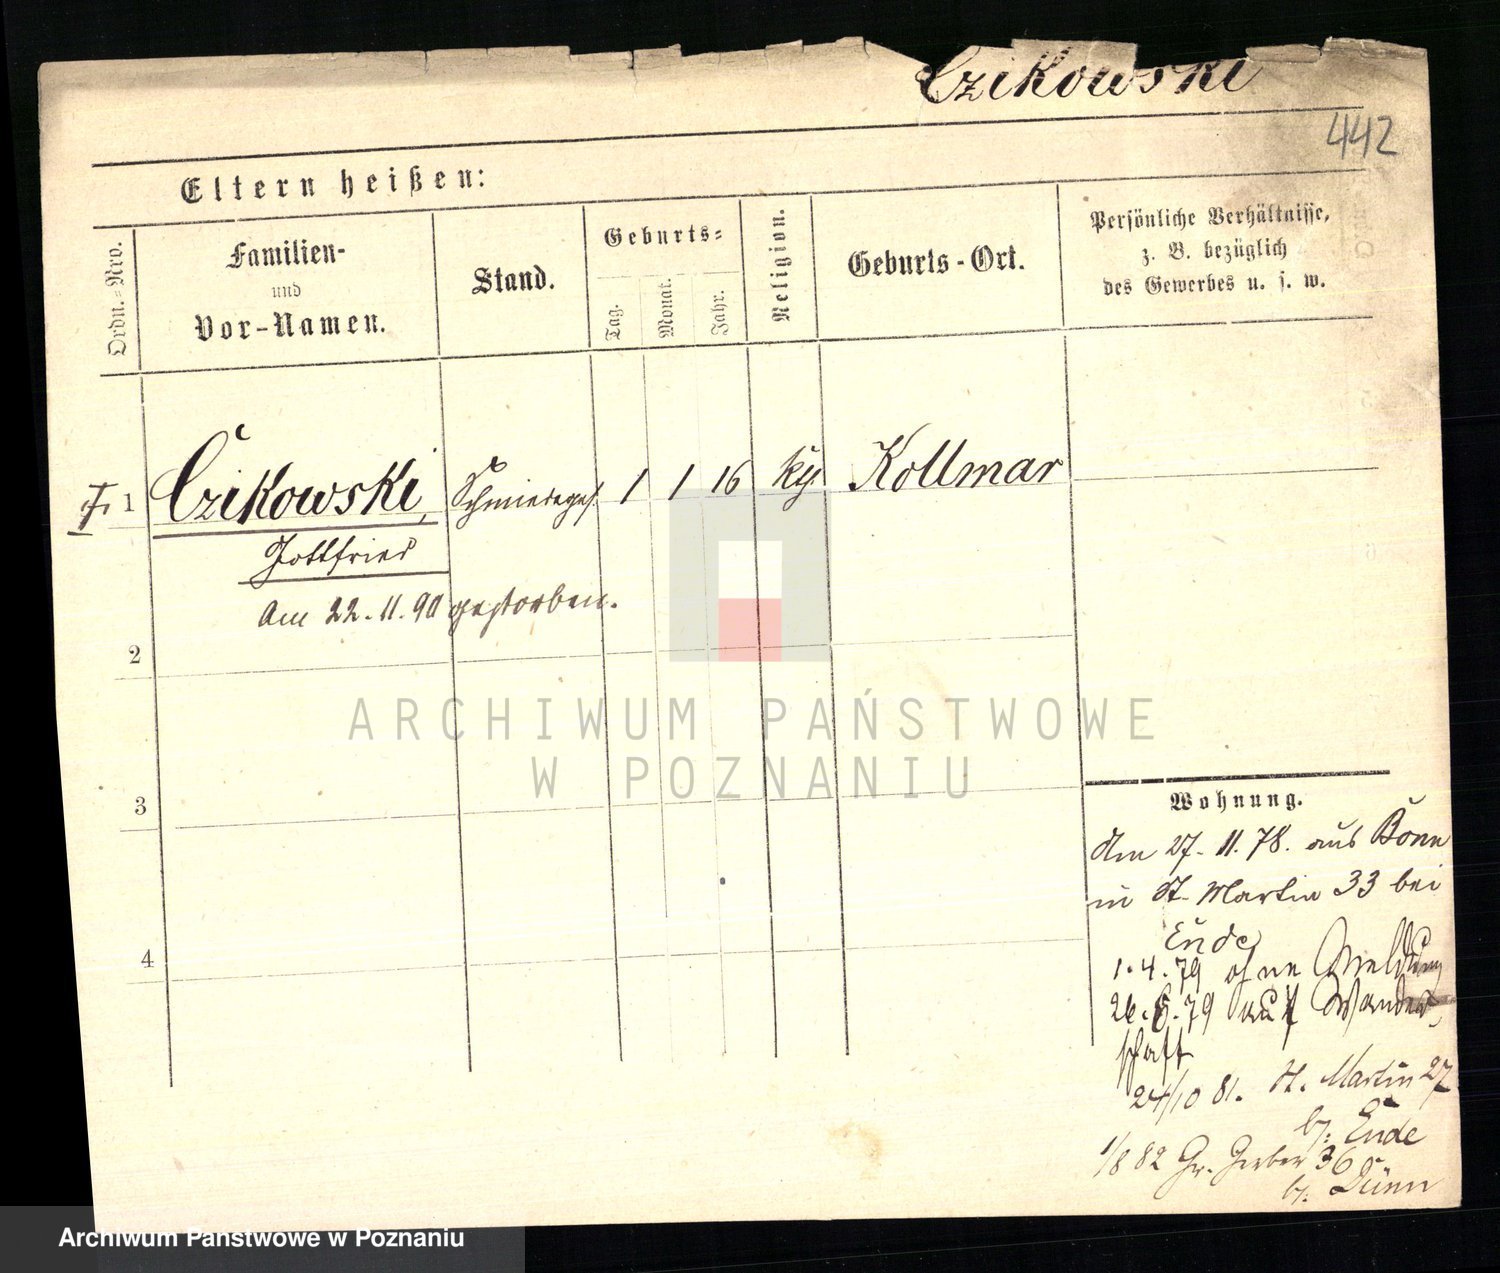 Czikowski
442
Eltern heißen:
Ordn.-Nro.
Familien-
und
Vor-Namen.
Stand.
Geburts-
Tag.
Monat.
Jahr.
Religion.
Geburts-Ort.
Persönliche Verhältnisse,
z. B. bezüglich
des Gewerbes u. s. w.
1 Czikowski, Schmiedeges. 1 1 16 Kollmar
Gottfried
Am 22.11.90 gestorben.
2
3
4
Wohnung.
Am 27.11.78. aus Bonn
in St. Martin 33 bei
Ende
1.4.79 ohne Meldung
26.6.79 auf Wander-
schaft
24/10 81. St. Martin 27
b. Ende
1/8 82 Gr. Gerber 36
b. Dünn
ARCHIWUM PAŃSTWOWE
W POZNANIU
Archiwum Państwowe w Poznaniu